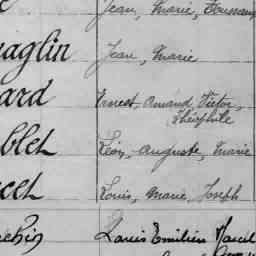 Jean, Marie, Toussaint
aglin Jean, Marie
ard Ernest, Amand, Victor,
Théophile
blet Léon, Auguste, Marie
cet Louis, Marie, Joseph
Louis Emilien Marcel